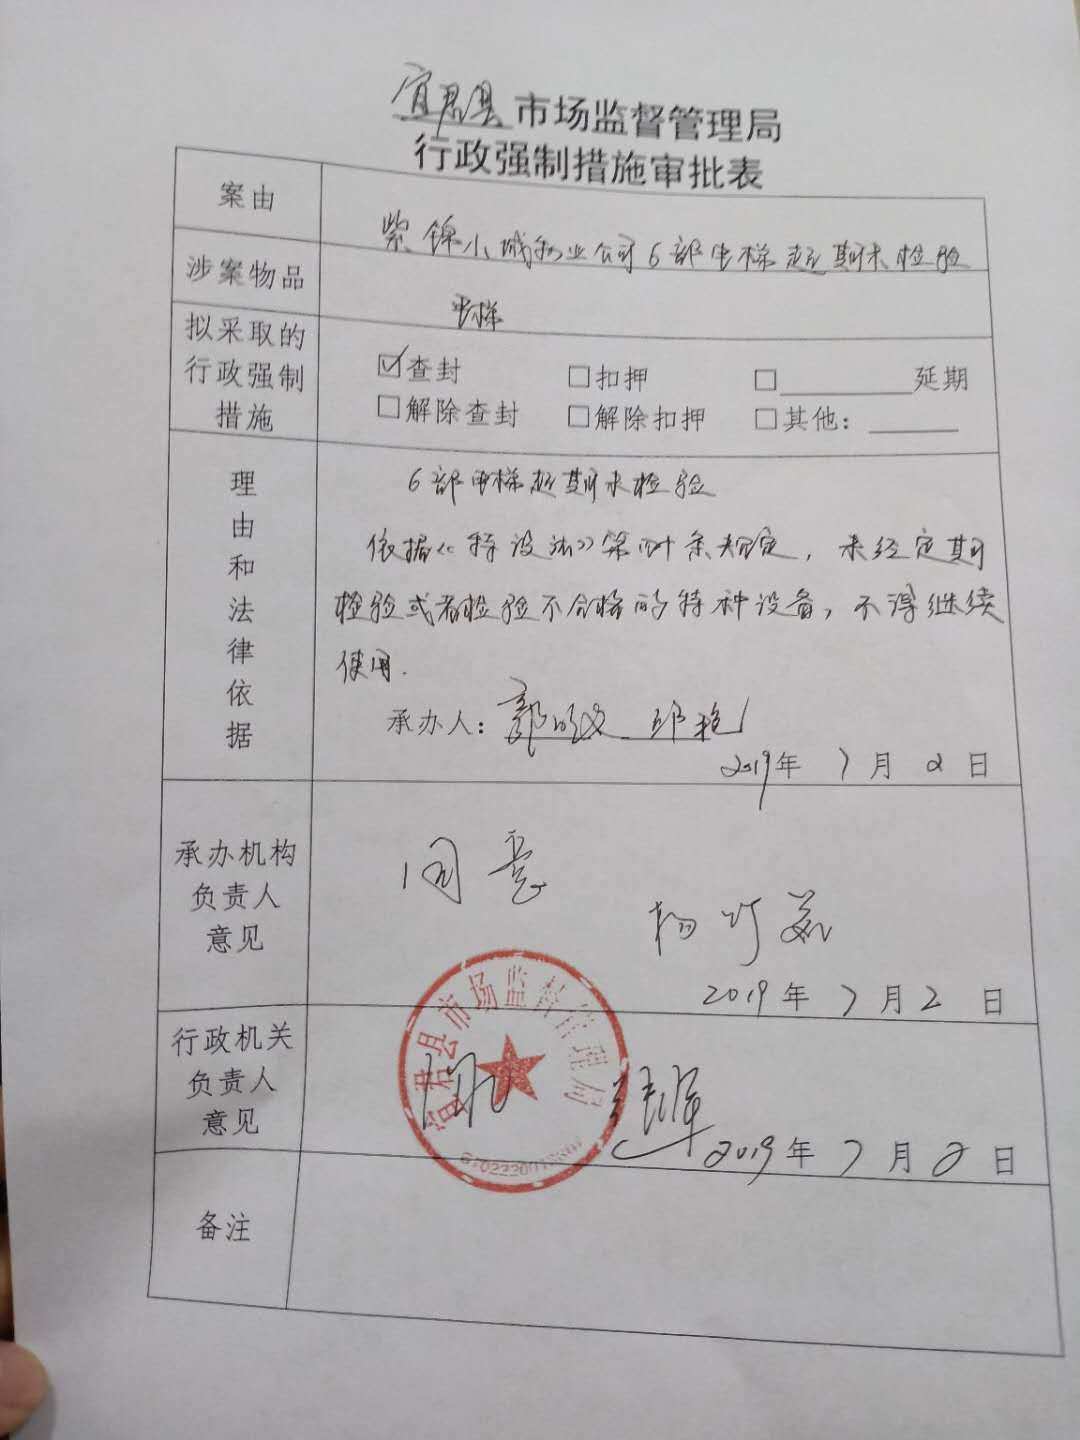 宜君县市场监督管理局
行政强制措施审批表
案由
紫锦小城物业公司6部电梯超期未检验
涉案物品
电梯
拟采取的
行政强制
措施
☑查封 □扣押 □________延期
□解除查封 □解除扣押 □其他：______
理由和法律依据
6部电梯超期未检验
依据《特设法》第四十条规定，未经定期
检验或者检验不合格的特种设备，不得继续
使用.
承办人：郭 邱艳
2019年7月2日
承办机构
负责人
意见
同意
杨
2019年7月2日
行政机关
负责人
意见
宜君县市场监督管理局
同意
2019年7月2日
备注